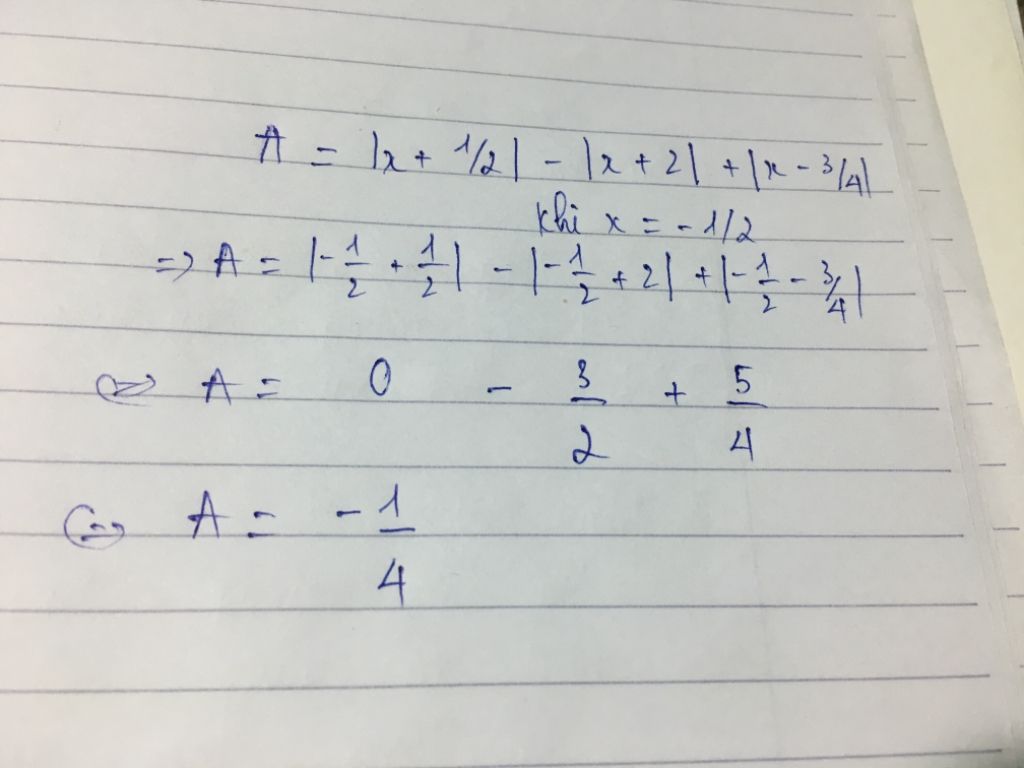 A = |x + 1/2| - |x + 2| + |x - 3/4|
khi x = -1/2
=> A = |-1/2 + 1/2| - |-1/2 + 2| + |-1/2 - 3/4|
<=> A = 0 - 3/2 + 5/4
<=> A = -1/4